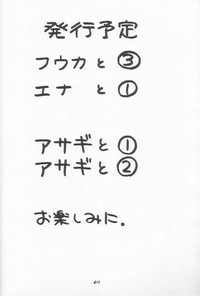 発行予定
フウカと③
エナ と①
アサギと①
アサギと②
お楽しみに.